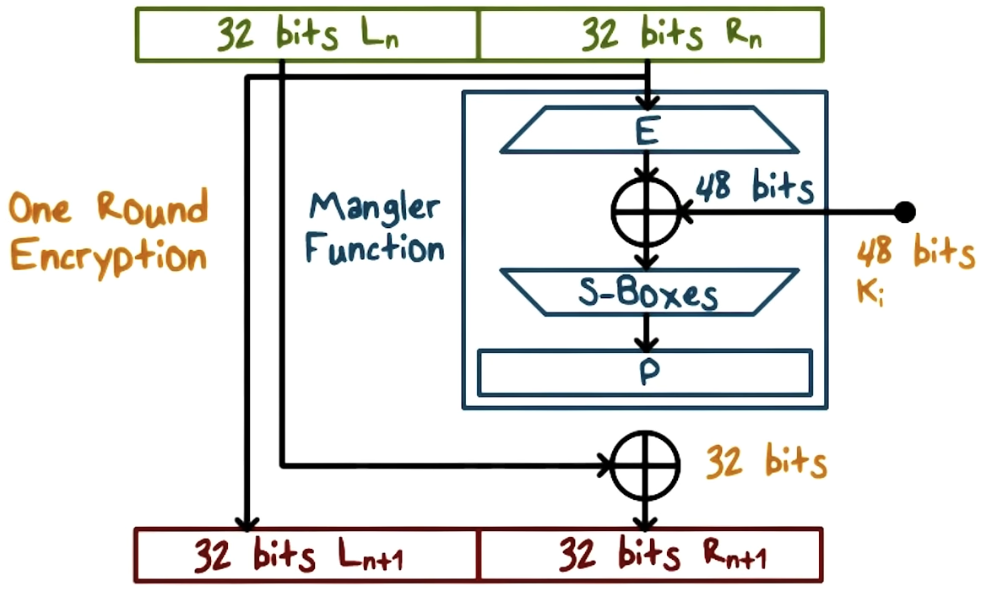 32 bits Ln
32 bits Rn
E
48 bits
One Round
Encryption
Mangler
Function
48 bits
Ki
S-Boxes
P
32 bits
32 bits Ln+1
32 bits Rn+1